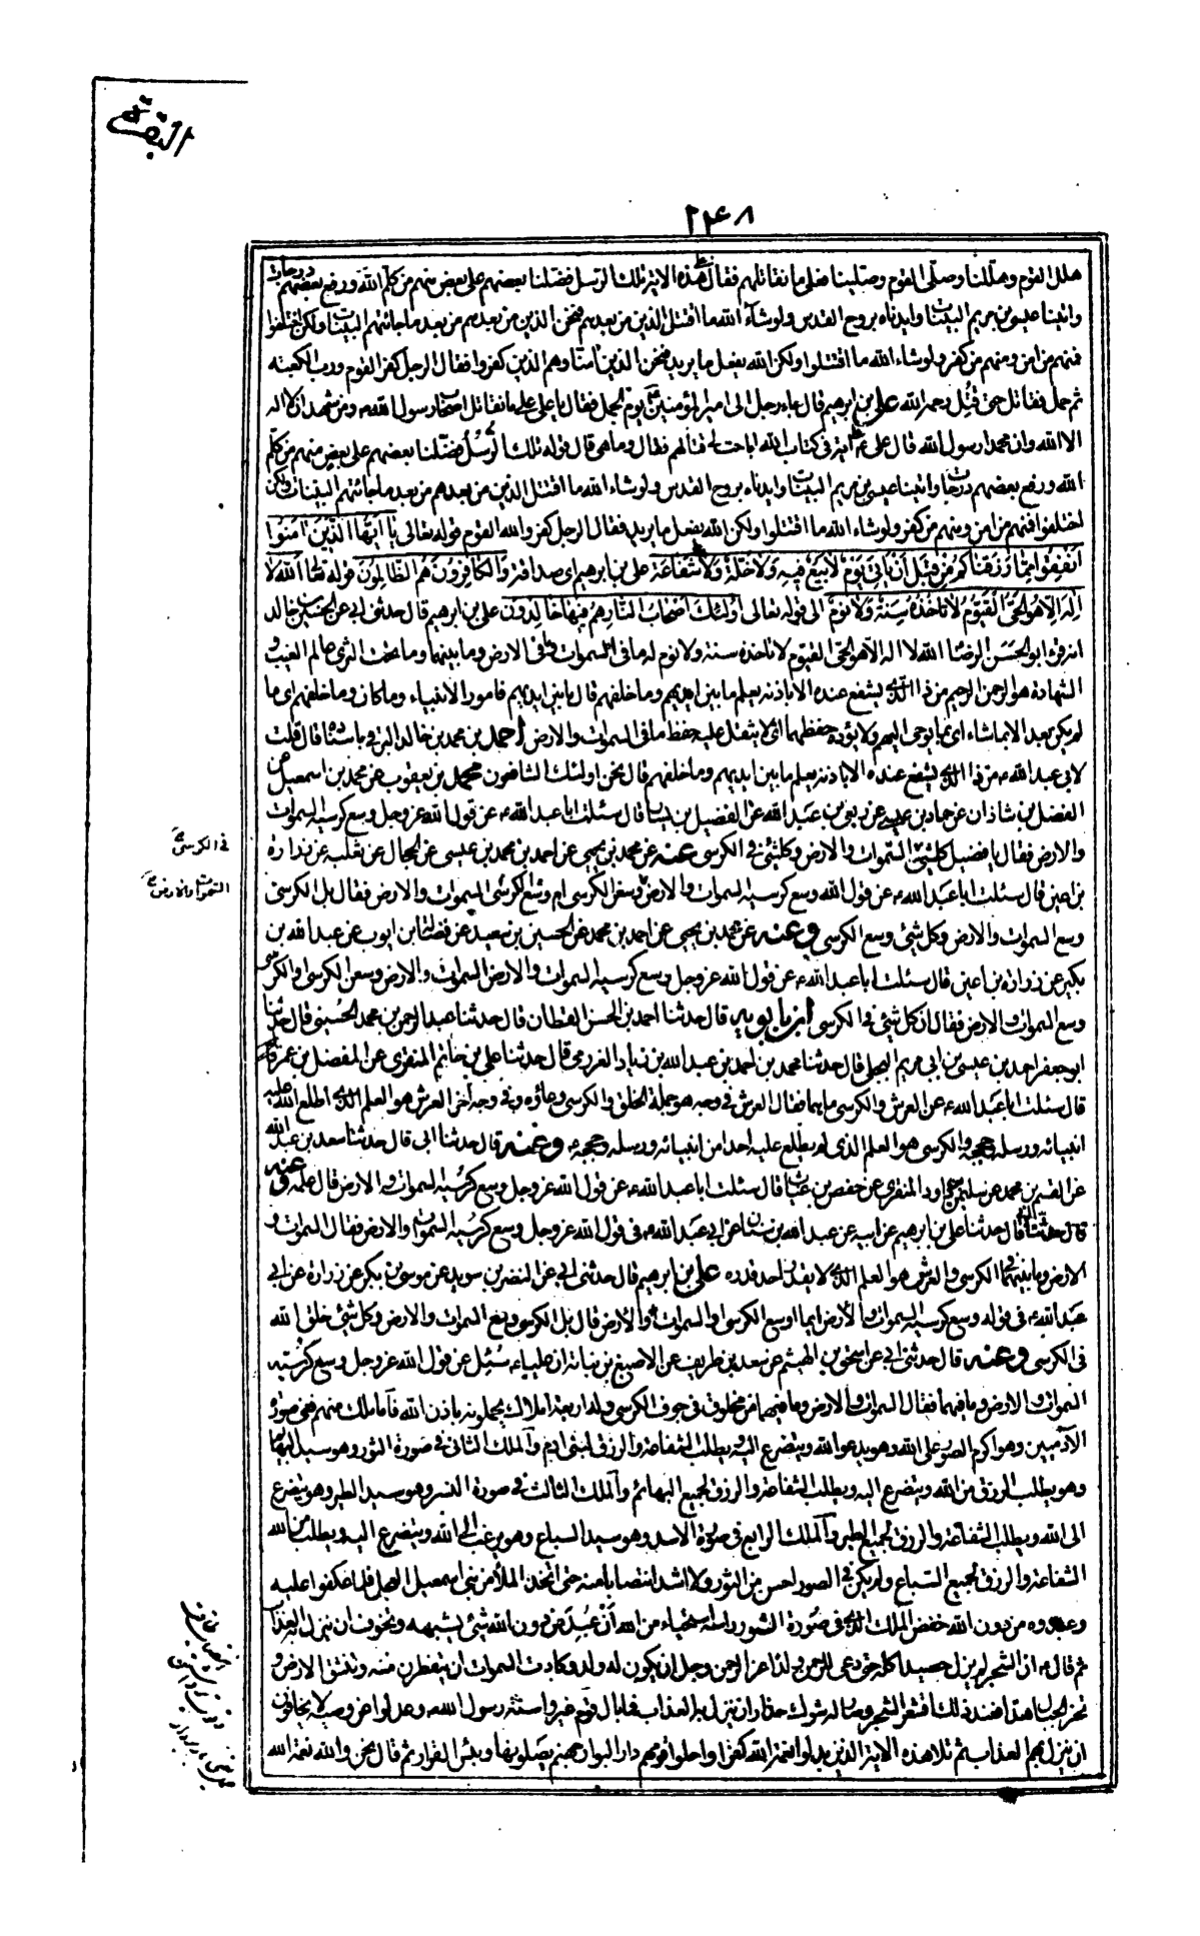 البقرة
٢٤٨
هلل القوم وهللنا وصلى القوم وصلينا فعلى ما نقاتلهم فقال ع هذه الآية تلك الرسل فضلنا بعضهم على بعض منهم من كلم الله ورفع بعضهم درجات
واتينا عيسى بن مريم البينات وايدناه بروح القدس ولو شاء الله ما اقتتل الذين من بعدهم فنحن الذين من بعدهم من بعد ما جائتهم البينات ولكن اختلفوا
فمنهم من امن ومنهم من كفر ولو شاء الله ما اقتتلوا ولكن الله يفعل ما يريد فنحن الذين امنا وهم الذين كفروا فقال الرجل كفر القوم ورب الكعبة
ثم حمل فقاتل حتى قتل رحمه الله علي بن ابرهيم قال جاء رجل الى امير المؤمنين ع يوم الجمل فقال يا علي على ما نقاتل اصحاب رسول الله ومن شهد ان لا اله
الا الله وان محمدا رسول الله قال على اية في كتاب الله اباحت لي قتالهم فقال وما هي قال قوله تلك الرسل فضلنا بعضهم على بعض منهم من كلم
الله ورفع بعضهم درجات واتينا عيسى بن مريم البينات وايدناه بروح القدس ولو شاء الله ما اقتتل الذين من بعدهم من بعد ما جائتهم البينات ولكن
اختلفوا فمنهم من امن ومنهم من كفر ولو شاء الله ما اقتتلوا ولكن الله يفعل ما يريد فقال الرجل كفر والله القوم قوله تعالى يا ايها الذين امنوا
انفقوا مما رزقناكم من قبل ان ياتي يوم لا بيع فيه ولا خلة ولا شفاعة علي بن ابرهيم اى صداقة والكافرون هم الظالمون قوله تعالى الله لا
اله الا هو الحي القيوم لا تاخذه سنة ولا نوم الى قوله تعالى اولئك اصحاب النار هم فيها خالدون علي بن ابرهيم قال حدثني ابي عن الحسين بن خالد
انه قرء ابو الحسن الرضا الله لا اله الا هو الحي القيوم لا تاخذه سنة ولا نوم له ما في السموات وما في الارض وما بينهما وما تحت الثرى عالم الغيب و
الشهادة هو الرحمن الرحيم من ذا الذي يشفع عنده الا باذنه يعلم ما بين ايديهم وما خلفهم قال ما بين ايديهم فامور الانبياء وما كان وما خلفهم اى ما
لم يكن بعد الا بما شاء اى بما يوحى اليهم ولا يؤده حفظهما اى لا يثقل عليه حفظ ما في السموات والارض احمد بن محمد بن خالد البرقي باسناده قال قلت
لابي عبد الله ع من ذا الذي يشفع عنده الا باذنه يعلم ما بين ايديهم وما خلفهم قال نحن اولئك الشافعون محمد بن يعقوب عن محمد بن اسمعيل عن
الفضل بن شاذان عن حماد بن عيسى عن ربعي بن عبد الله عن الفضيل بن يسار قال سئلت ابا عبد الله ع عن قول الله عز وجل وسع كرسيه السموات
والارض فقال يا فضيل كل شئ في السموات والارض وكل شئ في الكرسي وعنه عن محمد بن يحيى عن احمد بن محمد بن عيسى عن الحجال عن ثعلبة عن زرارة
بن اعين قال سئلت ابا عبد الله ع عن قول الله وسع كرسيه السموات والارض وسعن الكرسي ام وسع الكرسي السموات والارض فقال بل الكرسي
وسع السموات والارض وكل شئ وسع الكرسي وعنه عن محمد بن يحيى عن احمد بن محمد عن الحسين بن سعيد عن فضالة بن ايوب عن عبد الله بن
بكير عن زرارة بن اعين قال سئلت ابا عبد الله ع عن قول الله عز وجل وسع كرسيه السموات والارض السموات والارض وسعن الكرسي او الكرسي
وسع السموات والارض فقال ان كل شئ في الكرسي ابن بابويه قال حدثنا احمد بن الحسن القطان قال حدثنا عبد الرحمن بن محمد الحسيني قال حدثنا
ابو جعفر احمد بن عيسى بن ابي مريم العجلي قال حدثنا محمد بن احمد بن عبد الله بن زياد العرزمي قال حدثنا علي بن حاتم المنقري عن المفضل بن عمر
قال سئلت ابا عبد الله ع عن العرش والكرسي ما هما فقال العرش في وجه هو جملة الخلق والكرسي وعاؤه وفي وجه اخر العرش هو العلم الذي اطلع الله عليه
انبيائه ورسله وحججه والكرسي هو العلم الذي لم يطلع عليه احدا من انبيائه ورسله وحججه ع وعنه قال حدثنا ابي قال حدثنا سعد بن عبد الله
عن القسم بن محمد عن سليمن بن داود المنقري عن حفص بن غياث قال سئلت ابا عبد الله ع عن قول الله عز وجل وسع كرسيه السموات والارض قال علمه وعنه
قال حدثنا ابي قال حدثنا علي بن ابرهيم عن ابيه عن عبد الله بن سنان عن ابي عبد الله ع في قول الله عز وجل وسع كرسيه السموات والارض فقال السموات و
الارض وما بينهما في الكرسي والعرش هو العلم الذي لا يقدر احد قدره علي بن ابرهيم قال حدثني ابي عن النضر بن سويد عن موسى بن بكر عن زرارة عن ابي
عبد الله ع في قوله وسع كرسيه السموات والارض ايما اوسع الكرسي او السموات والارض قال بل الكرسي وسع السموات والارض وكل شئ خلق الله
في الكرسي وعنه قال حدثني ابي عن اسحق بن الهيثم عن سعد بن طريف عن الاصبغ بن نباتة ان عليا ع سئل عن قول الله عز وجل وسع كرسيه
السموات والارض وما فيهما فقال السموات والارض وما فيهما من مخلوق في جوف الكرسي وله اربعة املاك يحملونه باذن الله فاما ملك منهم ففي صورة
الآدميين وهو اكرم الصور على الله وهو يدعو الله ويتضرع اليه ويطلب الشفاعة والرزق لبني ادم والملك الثاني في صورة الثور وهو سيد البهائم
وهو يطلب الرزق من الله ويتضرع اليه ويطلب الشفاعة والرزق لجميع البهائم والملك الثالث في صورة النسر وهو سيد الطير وهو يتضرع
الى الله ويطلب الشفاعة والرزق لجميع الطير والملك الرابع في صورة الاسد وهو سيد السباع وهو يرغب الى الله ويتضرع اليه ويطلب من الله
الشفاعة والرزق لجميع السباع ولم يكن في الصور احسن من الثور ولا اشد انتصابا منه حتى اتخذ الملأ من بني اسمعيل العجل فلما عكفوا عليه
وعبدوه من دون الله خفض الملك الذي في صورة الثور راسه استحياء من الله ان عبد من دون الله شئ يشبهه وتخوف ان ينزل به العذاب
ثم قال ع ان الشجر لم يزل حصيدا كله حتى دعي للرحمن ولدا عز الرحمن وجل ان يكون له ولد وكادت السموات ان يتفطرن منه وتنشق الارض و
تخر الجبال هدا فعند ذلك اقشعر الشجر وصار له شوك حذارا ان ينزل به العذاب فما بال قوم غيروا سنة رسول الله وعدلوا عن وصيه لا يخافون
ان ينزل بهم العذاب ثم تلا هذه الاية الذين بدلوا نعمة الله كفرا واحلوا قومهم دار البوار جهنم يصلونها وبئس القرار ثم قال نحن والله نعمة الله
في الكرسي
السموات والارض